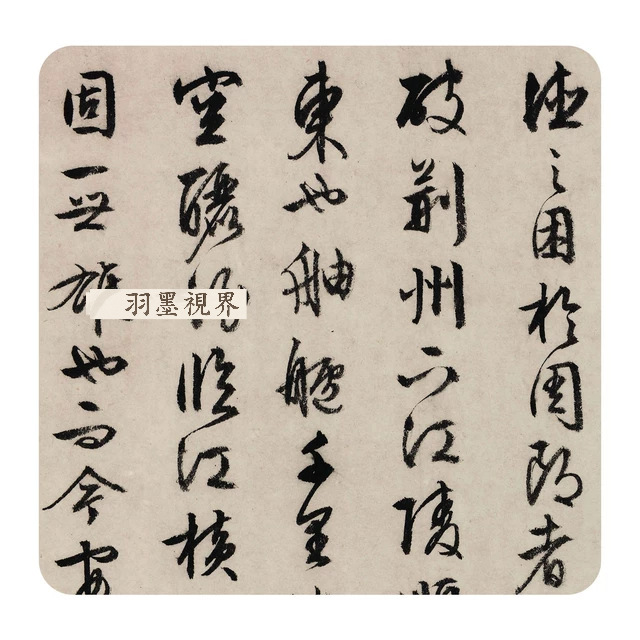 德之困於周郎者
破荊州下江陵順
東也舳艫千里
空釃酒臨江橫
固一世雄也而今安
羽墨視界